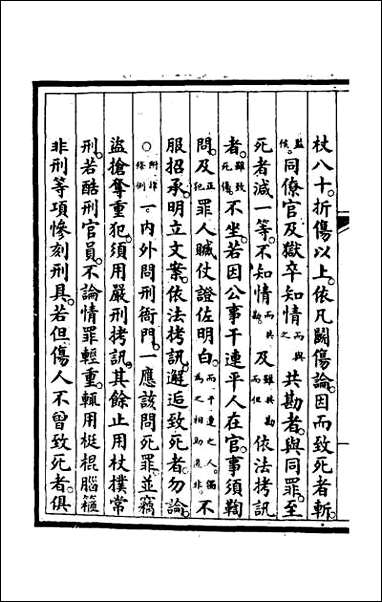 杖八十。折傷以上。依凡鬬傷論。因而致死者斬。
監候。同僚官及獄卒知情而與之共勘者。與同罪。至
死者減一等。不知情而共勘。及雖共勘而但依法拷訊
者。雖致死傷。不坐。若因公事干連平人在官。事須鞫
問。及正犯罪人贓仗證佐明白。而干連之人獨為之相助匿非。不
服招承。明立文案。依法拷訊。邂逅致死者。勿論。
○附律條例一。內外問刑衙門。一應該問死罪。並竊
盜搶奪重犯。須用嚴刑拷訊。其餘止用杖撲常
刑。若酷刑官員。不論情罪輕重。輒用梃棍腦箍
非刑等項慘刻刑具。若但傷人不曾致死者。俱